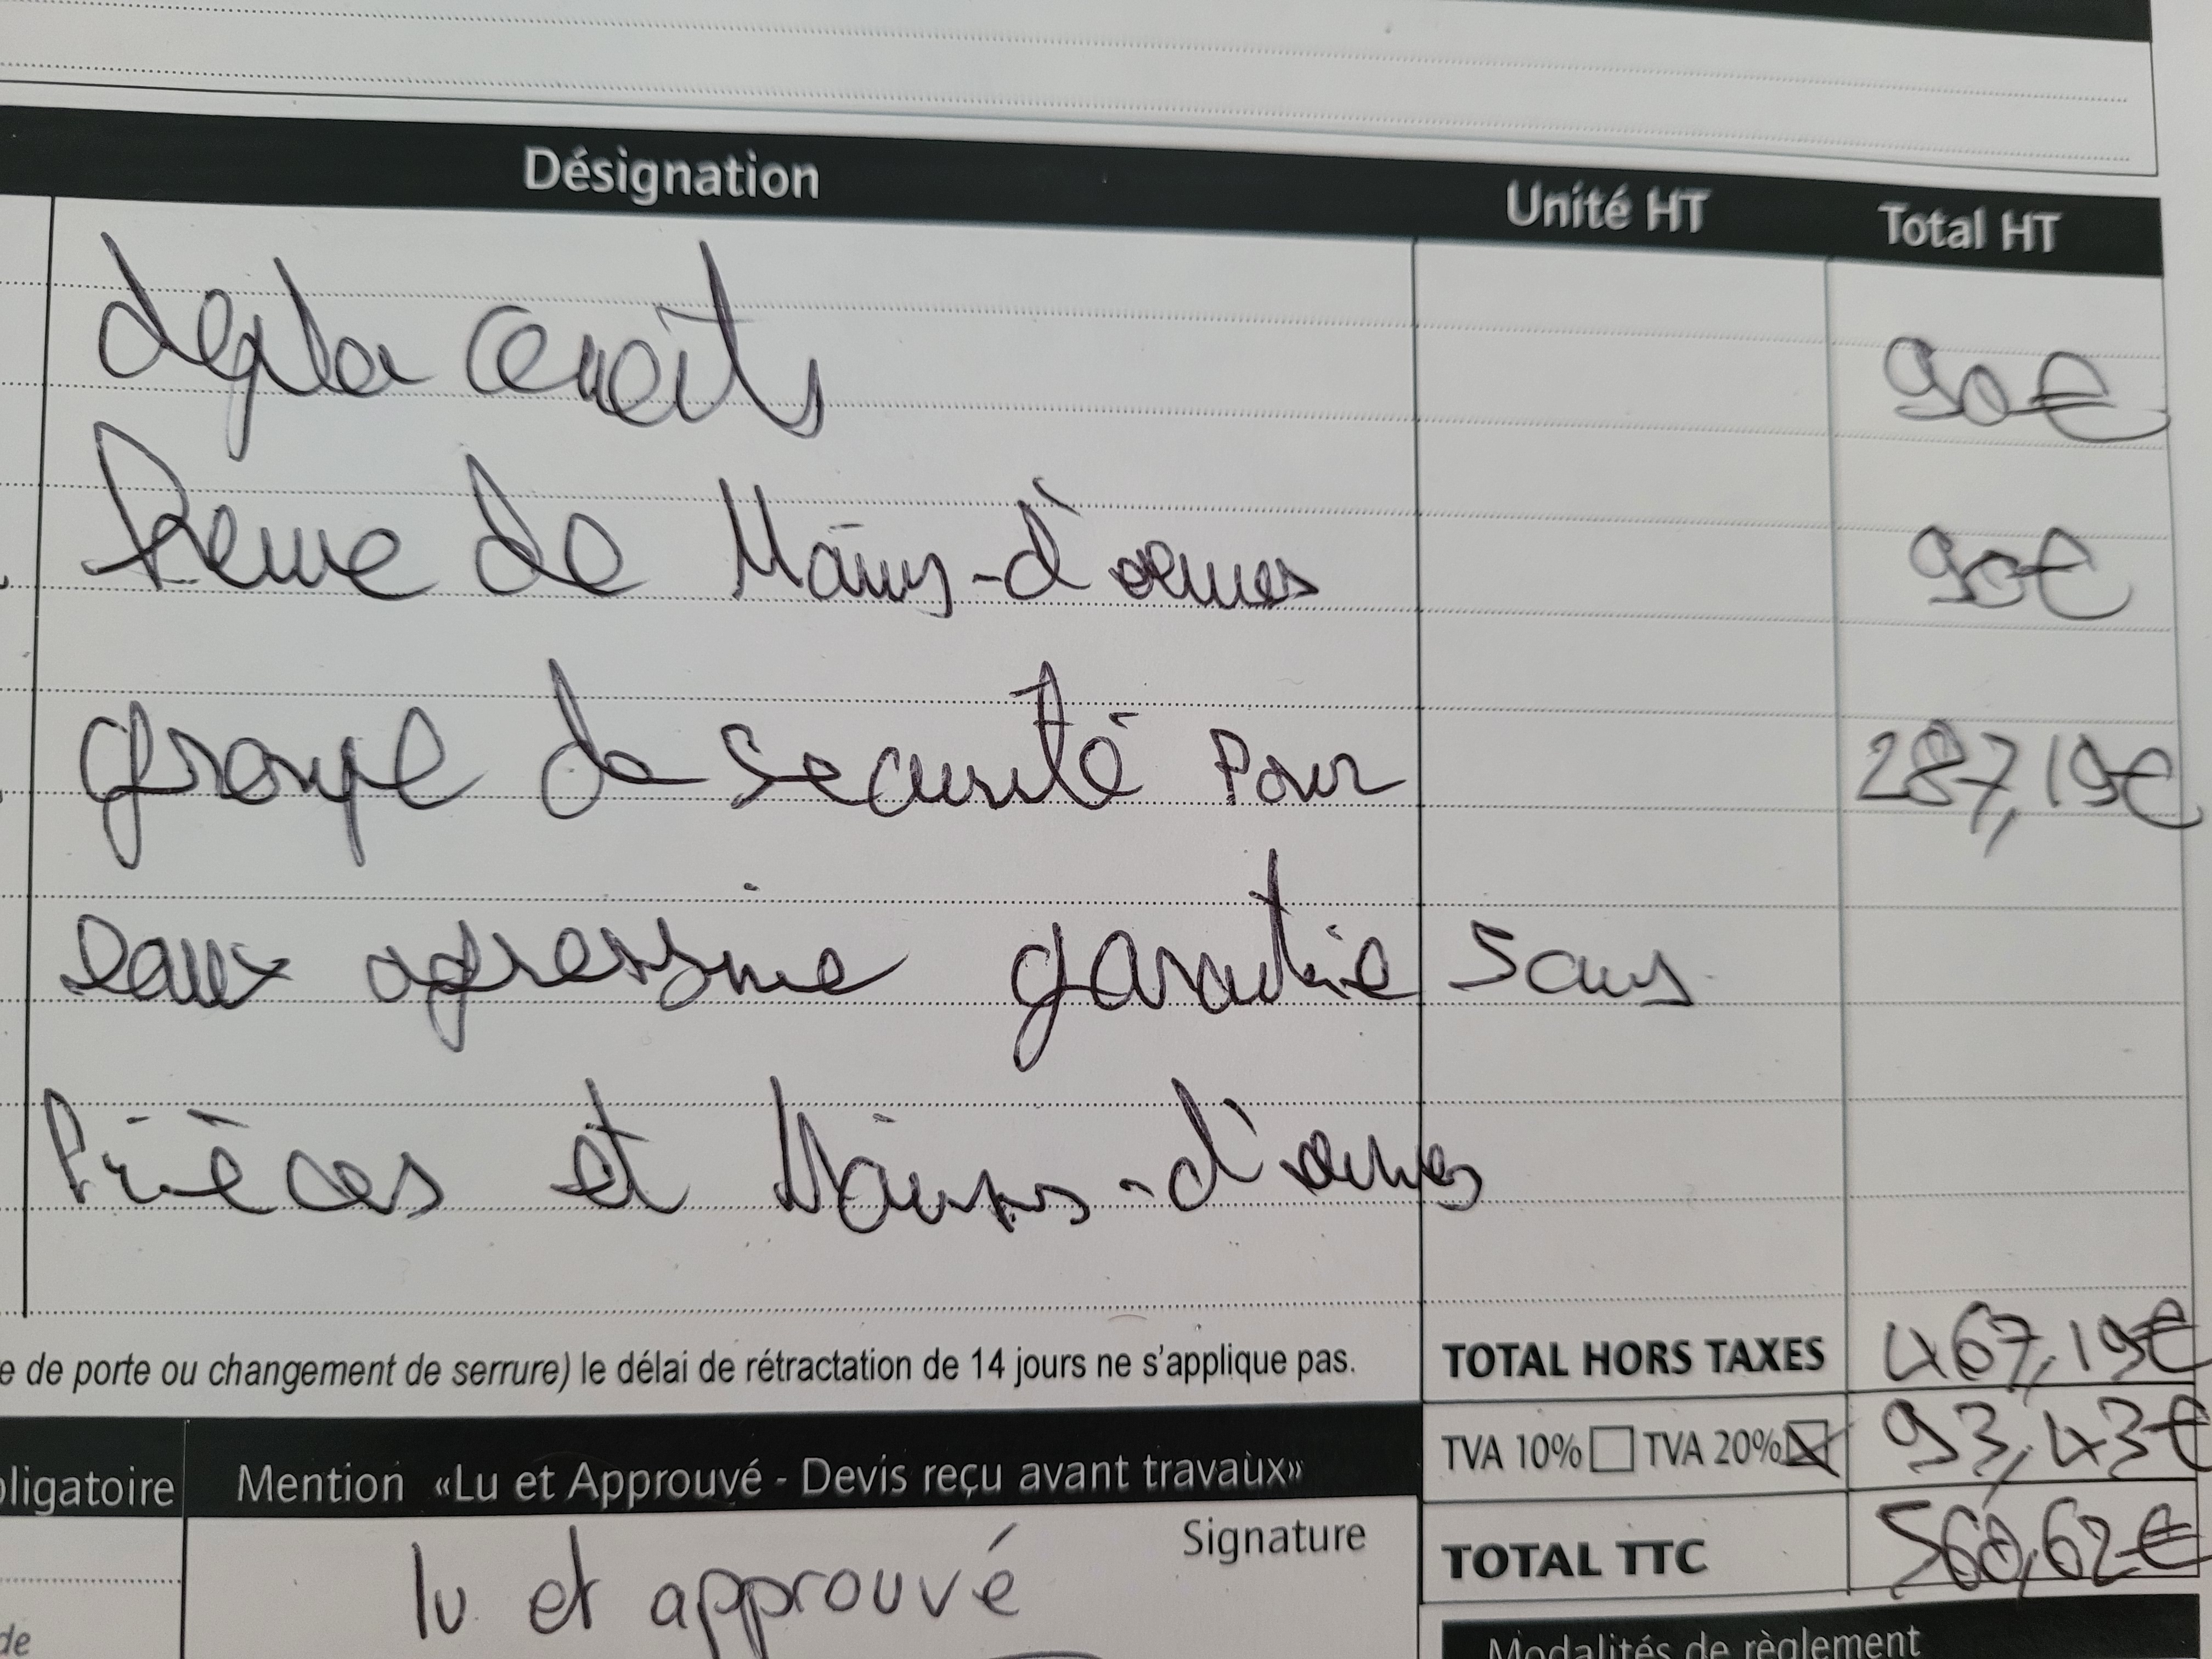 Désignation Unité HT Total HT
deplacements 90€
heure de Mains-d'œuvres 90€
groupe de securité Pour 287,19€
eaux agressive garantie 5 ans
Pièces et Mains-d'œuvres
e de porte ou changement de serrure) le délai de rétractation de 14 jours ne s'applique pas.
TOTAL HORS TAXES 467,19€
TVA 10% TVA 20% 93,43€
TOTAL TTC 560,62€
bligatoire
Mention «Lu et Approuvé - Devis reçu avant travaux»
Signature
lu et approuvé
de
Modalités de règlement